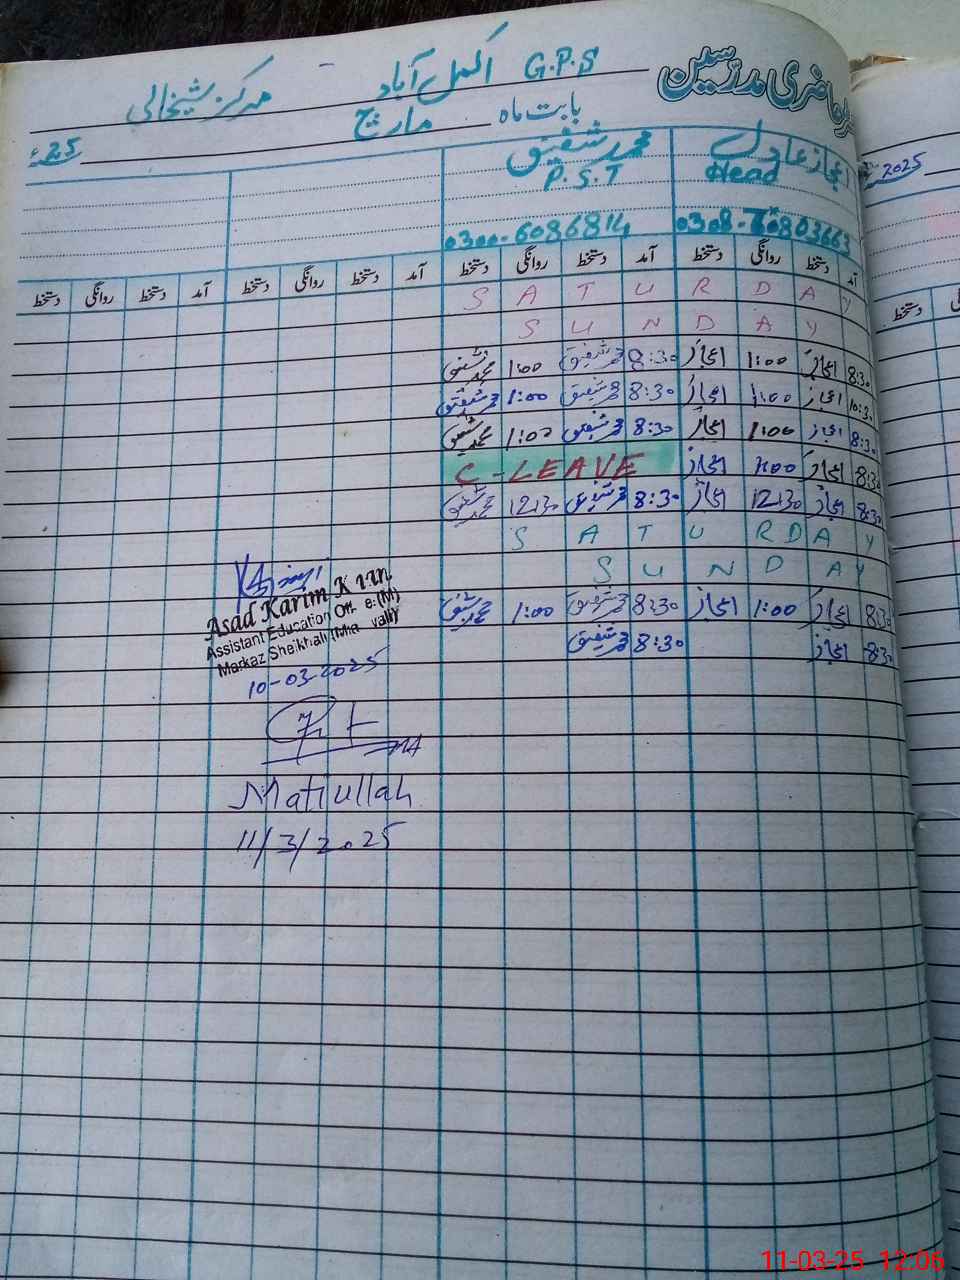 رجسٹر حاضری مدرسین
G.P.S اکمل آباد مرکز شیخالی
بابت ماہ مارچ 25ء
اعجاز عادل محمد شفیق
Head P.S.T
0300-6086814
آمد دستخط روانگی دستخط آمد دستخط روانگی دستخط آمد دستخط روانگی دستخط آمد دستخط روانگی دستخط
SATURDAY
SUNDAY
8:30 اعجاز 1:00 اعجاز 8:30 محمد شفیق 1:00 محمد شفیق
10:30 اعجاز 1:00 اعجاز 8:30 محمد شفیق 1:00 محمد شفیق
8:30 اعجاز 1:00 اعجاز 8:30 محمد شفیق 1:00 محمد شفیق
8:30 اعجاز 1:00 اعجاز C-LEAVE
8:30 اعجاز 12:30 اعجاز 8:30 محمد شفیق 12:30 محمد شفیق
SATURDAY
SUNDAY
8:30 اعجاز 1:00 اعجاز 8:30 محمد شفیق 1:00 محمد شفیق
8:30 اعجاز 8:30 محمد شفیق
Asad Karim Khan
Assistant Education Officer (M)
Markaz Sheikhali (Mianwali)
10-03-2025
Matiullah
11/3/2025
2025
دستخط
11-03-25 12:06